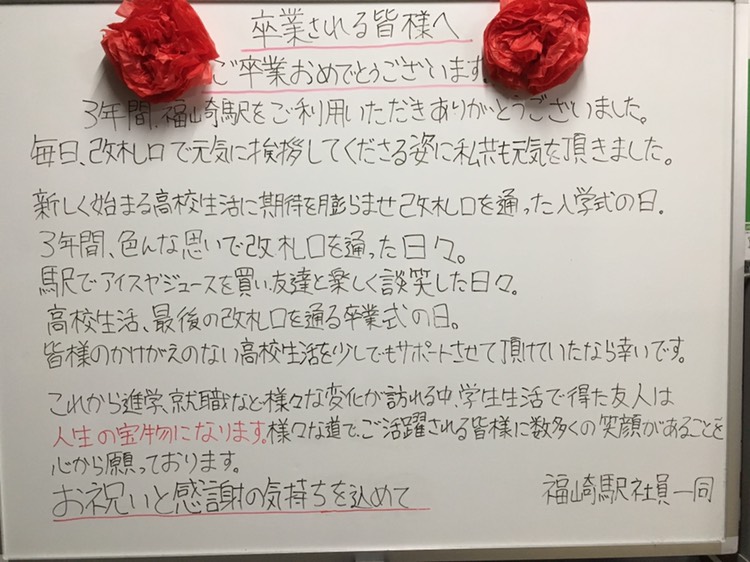 卒業される皆様へ
ご卒業おめでとうございます。
3年間、福崎駅をご利用いただきありがとうございました。
毎日、改札口で元気に挨拶してくださる姿に私共も元気を頂きました。
新しく始まる高校生活に期待を膨らませ改札口を通った入学式の日。
3年間、色んな思いで改札口を通った日々。
駅でアイスやジュースを買い、友達と楽しく談笑した日々。
高校生活、最後の改札口を通る卒業式の日。
皆様のかけがえのない高校生活を少しでもサポートさせて頂けていたなら幸いです。
これから進学、就職など様々な変化が訪れる中、学生生活で得た友人は
人生の宝物になります。様々な道で、ご活躍される皆様に数多くの笑顔があることを
心から願っております。
お祝いと感謝の気持ちを込めて
福崎駅社員一同